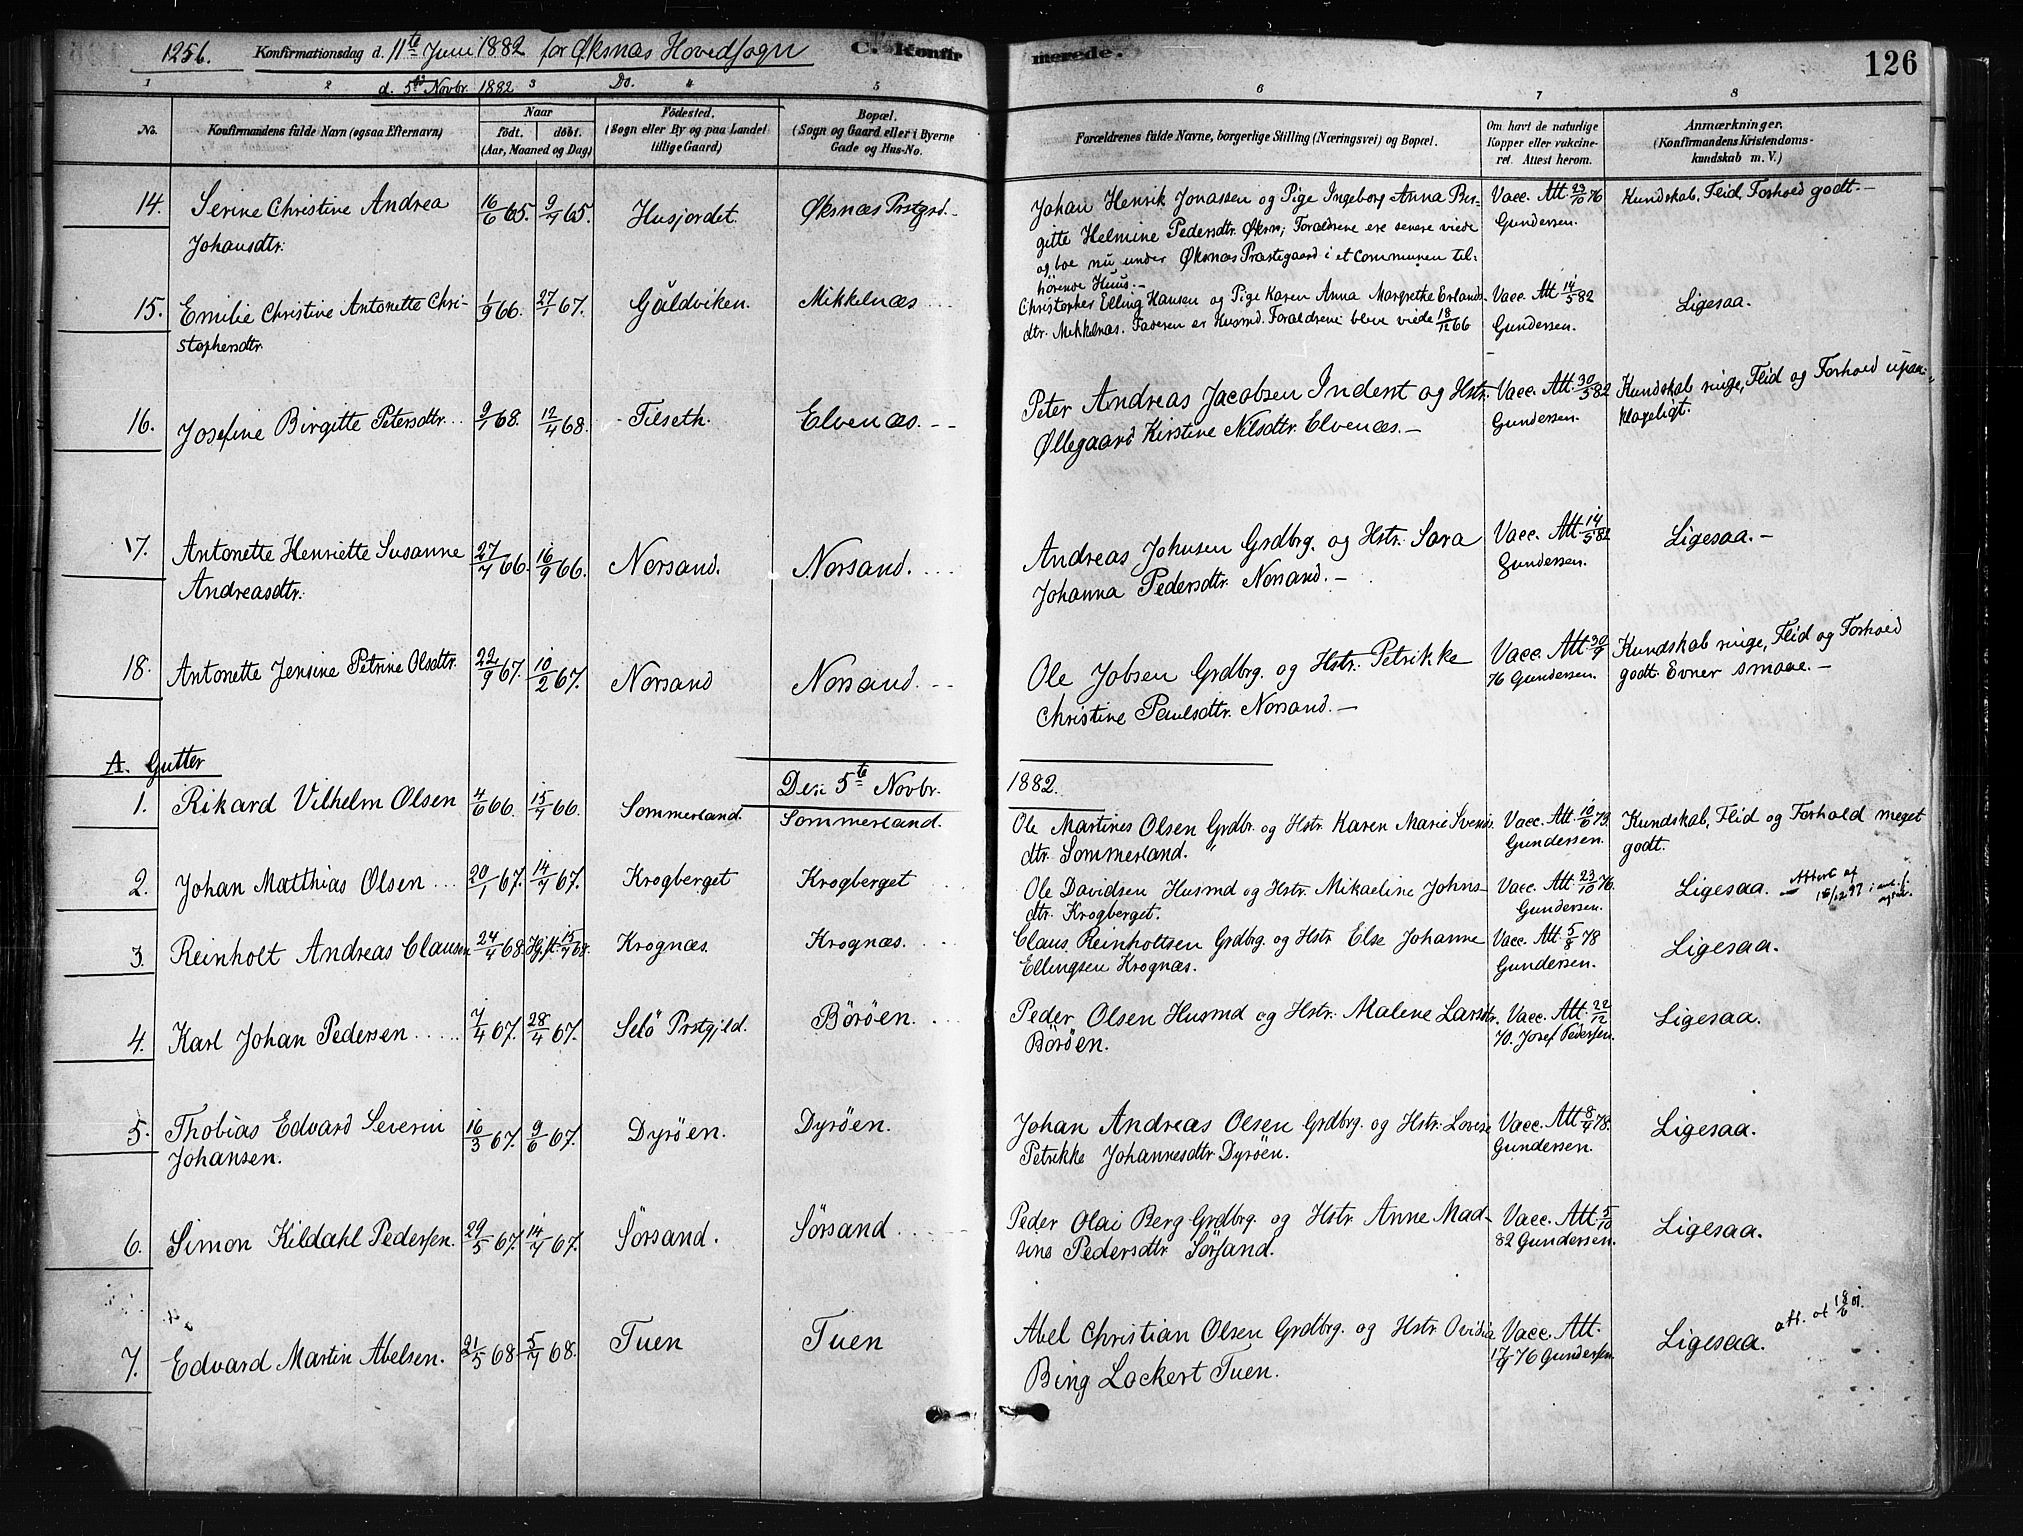 1256. Konfirmationsdag d. 11te Juni 1882 for Øksnæs Hovedsogn C. Konfirmerede. 126
d. 5te Novbr. 1882. Do.
1 2 3 4 5 6 7 8
No.
Konfirmandens fulde Navn (ogsaa Efternavn)
Naar
födt. döbt.
(Aar, Maaned og Dag)
Födested.
(Sogn eller By og paa Landet
tillige Gaard)
Bopæl.
(Sogn og Gaard eller i Byerne
Gade og Hus-No.
Forældrenes fulde Navne, borgerlige Stilling (Næringsvei) og Bopæl.
Om havt de naturlige
Kopper eller vaccineret. Attest herom.
Anmærkninger.
(Konfirmandens Kristendomskundskab m. V.)
14. Serine Christine Andrea
Johansdtr.
16/6 65. 9/7 65. Husjordet. Øksnæs Prstgrd.
Johan Henrik Jonassen og Pige Ingeborg Anna Bergitte Helmine Pedersdtr. Øksn; Forældrene ere senere viede
og boe nu under Øksnæs Præstegaard i et Communen tilhørende Huus.-
Vacc. Att. 23/10 76
Gundersen.
Kundskab, Flid, Forhold godt.-
15. Emilie Christine Antonette Christophersdtr.
1/9 66. 27/1 67. Gåldviken. Mikkelnæs
Christopher Elling Hansen og Pige Karen Anna Margrethe Erlandsdtr. Mikkelnæs. Faderen er Husmd. Forældrene bleve viede 18/12 66
Vacc. Att. 14/5 82
Gundersen.
Ligesaa.
16. Josefine Birgitte Petersdtr.
9/1 68. 12/4 68. Tilseth. Elvenæs.
Peter Andreas Jacobsen Inderst og Hstr.
Øllegaard Kirstine Nilsdtr. Elvenæs.-
Vacc. Att. 30/5 82
Gundersen.
Kundskab ringe, Flid og Forhold upaaklageligt.
17. Antonette Henriette Susanne
Andreasdtr.
27/7 66. 16/9 66. Norsand. Norsand.
Andreas Johnsen Grdbrg. og Hstr. Sara
Johanna Pedersdtr. Norsand.-
Vacc. Att. 14/5 82
Gundersen.
Ligesaa.-
18. Antonette Jensine Petrine Olsdtr.
22/9 67. 10/2 67. Norsand Norsand.
Ole Jobsen Grdbrg. og Hstr. Petrikke
Christine Paulsdtr. Norsand.-
Vacc. Att. 30/9
76 Gundersen.
Kundskab ringe, Flid og Forhold
godt. Evner smaae.-
A. Gutter Den 5te Novbr. 1882.
1. Rikard Vilhelm Olsen
4/6 66. 15/7 66. Sommerland. Sommerland.
Ole Martines Olsen Grdbr. og Hstr. Karen Marie Svensdtr. Sommerland.
Vacc. Att. 10/6 73.
Gundersen.
Kundskab, Flid og Forhold meget
godt.
2. Johan Matthias Olsen
20/1 67. 14/7 67. Krogberget Krogberget
Ole Davidsen Husmd og Hstr. Mikaeline Johnsdtr. Krogberget.
Vacc. Att. 23/10 76.
Gundersen.
Ligesaa.
3. Reinholt Andreas Clausen
24/4 68. 15/7 68. Krognæs. Krognæs.
Claus Reinholtsen Grdbrg. og Hstr Else Johanne
Ellingsen Krognæs.
Vacc. Att. 5/8 78
Gundersen.
Ligesaa.
4. Karl Johan Pedersen
7/4 67. 28/4 67. Selö Prstgjld. Böröen.
Peder Olsen Husmd og Hstr. Malene Larsdtr.
Böröen.
Vacc. Att. 22/12
70. Josef Pedersen.
Ligesaa.
5. Thobias Edvard Severin
Johansen.
16/3 67. 9/6 67. Dyröen. Dyröen.
Johan Andreas Olsen Grdbrg. og Hstr. Lovise
Petrikke Johannesdtr Dyröen.
Vacc. Att. 8/4 78.
Gundersen.
Ligesaa.
6. Simon Kildahl Pedersen.
29/5 67. 14/7 67. Sörsand. Sörsand
Peder Olai Berg Grdbrg. og Hstr. Anne Madsine Pedersdtr Sörsand.
Vacc. Att. 5/10
82 Gundersen.
Ligesaa.
7. Edvard Martin Abelsen.
21/5 68. 5/7 68. Tuen Tuen
Abel Christian Olsen Grdbrg. og Hstr. Ovidia
Bing Lockert Tuen.
Vacc. Att.
17/9 76 Gundersen.
Ligesaa. att. at 18/6 01.